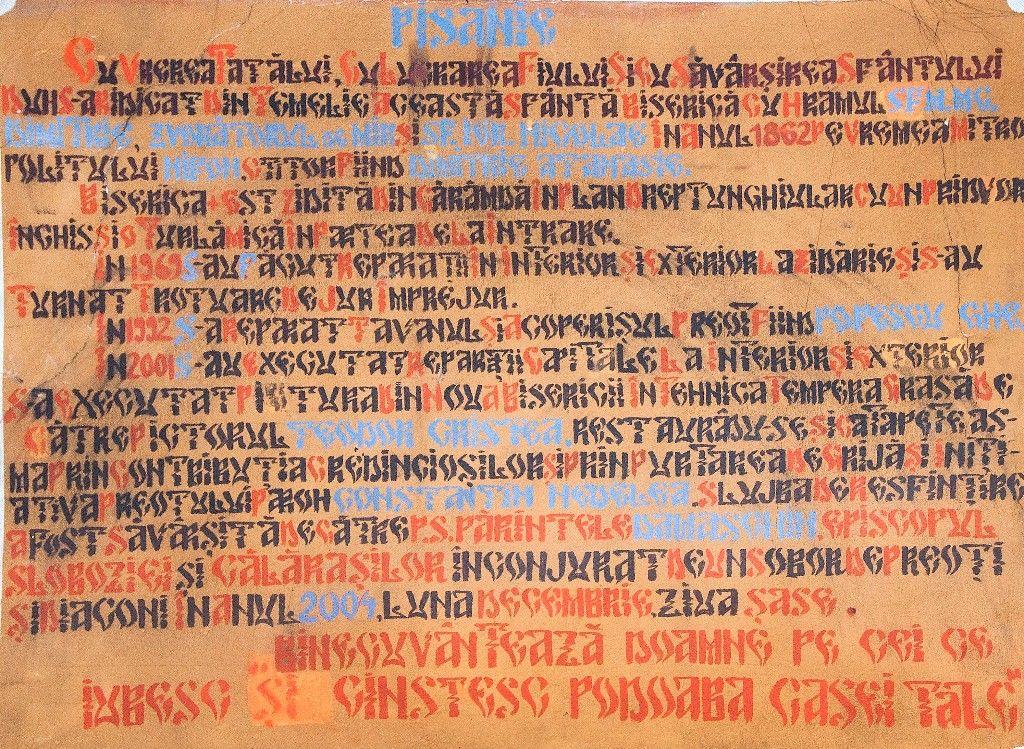 PISANIE
CU VREREA TATĂLUI, CU LUCRAREA FIULUI ȘI CU SĂVÂRȘIREA SFÂNTULUI
DUH S-A RIDICAT DIN TEMELIE ACEASTĂ SFÂNTĂ BISERICĂ CU HRAMUL SF. M. MC.
DIMITRIE IZVORÂTORUL DE MIR ȘI SF. IER. NICOLAE ÎN ANUL 1862 PE VREMEA MITRO
POLITULUI NIFON CTITOR FIIND DIMITRIE ATANASIE.
BISERICA ESTE ZIDITĂ DIN CĂRĂMIDĂ ÎN PLAN DREPTUNGHIULAR CU UN PRIDVOR
ÎNCHIS ȘI O TURLĂ MICĂ ÎN PARTEA DE LA INTRARE.
ÎN 1969 S-AU FĂCUT REPARAȚII ÎN INTERIOR ȘI EXTERIOR LA ZIDĂRIE ȘI S-AU
TURNAT TROTUARE DE JUR ÎMPREJUR.
ÎN 1992 S-A REPARAT TAVANUL ȘI ACOPERIȘUL PREOT FIIND POPESCU GHE.
ÎN 2001 S-AU EXECUTAT REPARAȚII CAPITALE LA INTERIOR ȘI EXTERIOR
S-A EXECUTAT PICTURA DIN NOU A BISERICII ÎN TEHNICA TEMPERA GRASĂ DE
CĂTRE PICTORUL TEODOR CRISTEA, RESTAURÂDU-SE ȘI CATAPETEAS-
MA PRIN CONTRIBUȚIA CREDINCIOȘILOR ȘI PRIN PURTAREA DE GRIJĂ ȘI INIȚI-
ATIVA PREOTULUI PAROH CONSTANTIN NEDELEA. SLUJBA DE RESFINȚIRE
A FOST SĂVÂRȘITĂ DE CĂTRE P.S. PĂRINTELE DAMASCHIN, EPISCOPUL
SLOBOZIEI ȘI CĂLĂRAȘILOR ÎNCONJURAT DE UN SOBOR DE PREOȚI
ȘI DIACONI ÎN ANUL 2004, LUNA DECEMBRIE, ZIUA ȘASE.
BINECUVÂNTEAZĂ DOAMNE PE CEI CE
IUBESC ȘI CINSTESC PODOABA CASEI TALE